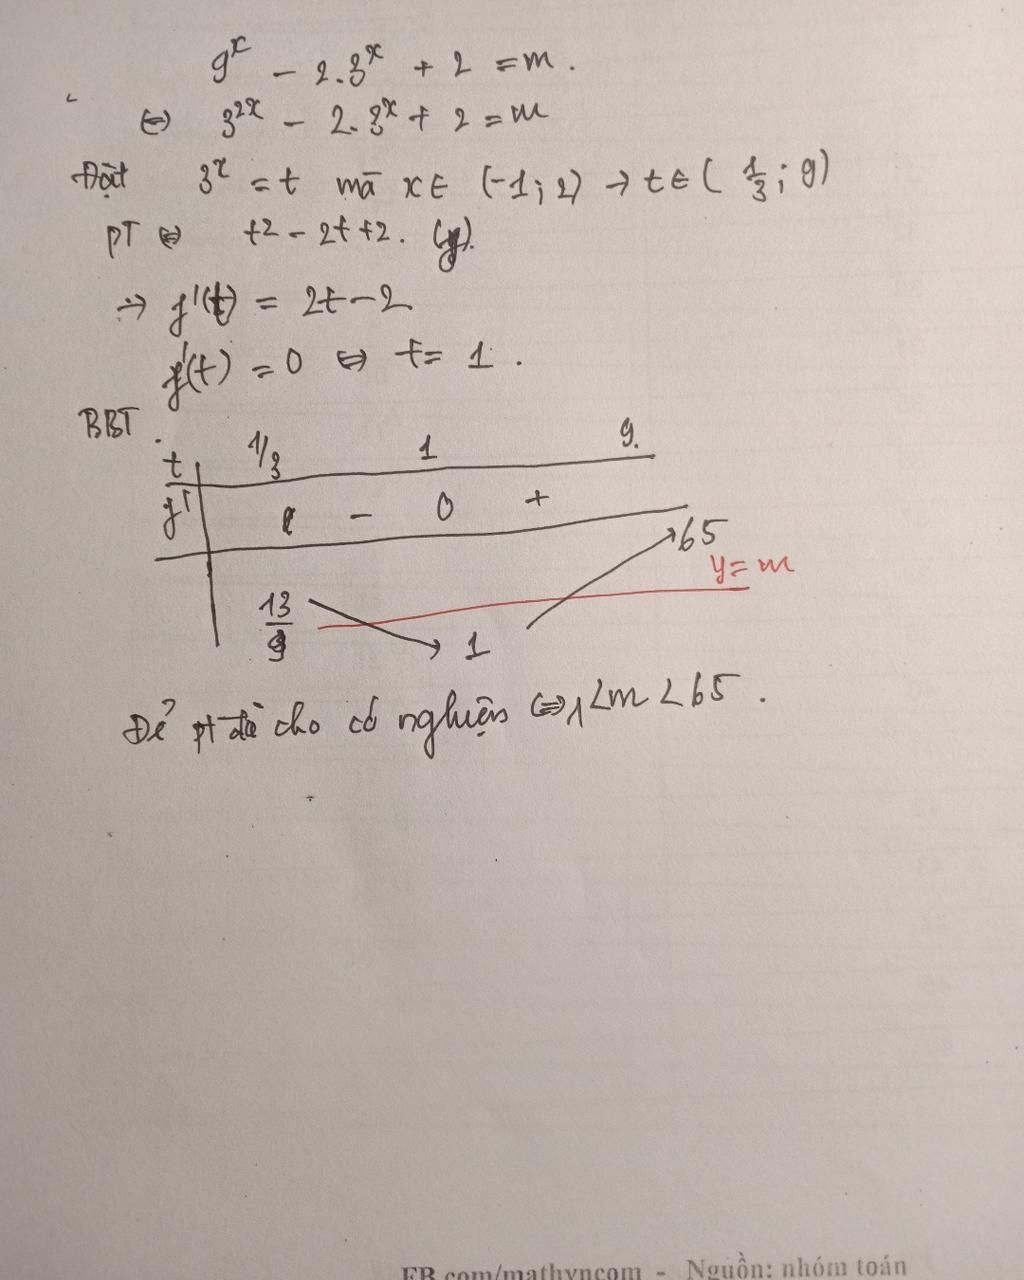 9^x - 2.3^x + 2 = m.
⇔ 3^{2x} - 2.3^x + 2 = m
Đặt 3^x = t mà x ∈ (-1; 2) → t ∈ ( 1/3 ; 9)
PT ⇔ t^2 - 2t + 2.
⇒ f'(t) = 2t - 2
f'(t) = 0 ⇔ t = 1.
BBT.
t 1/3 1 9.
f' - 0 +
65
y = m
13/9 1
Để pt đã cho có nghiệm ⇔ 1 < m < 65.
FB.com/mathvncom - Nguồn: nhóm toán